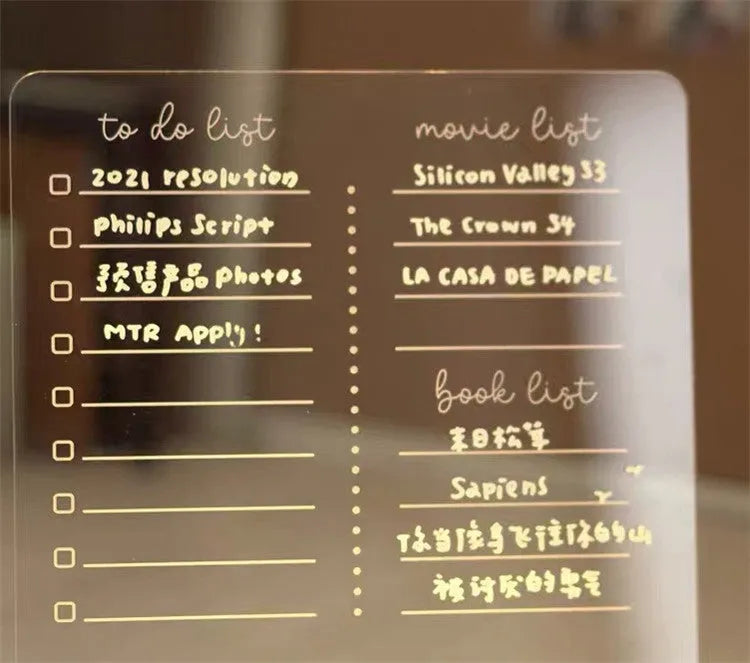 to do list
2021 resolution
philips Script
预售产品 photos
MTR Apply!
movie list
Silicon Valley S3
The Crown S4
LA CASA DE PAPEL
book list
末日松茸
Sapiens
你当像鸟飞往你的山
被讨厌的勇气